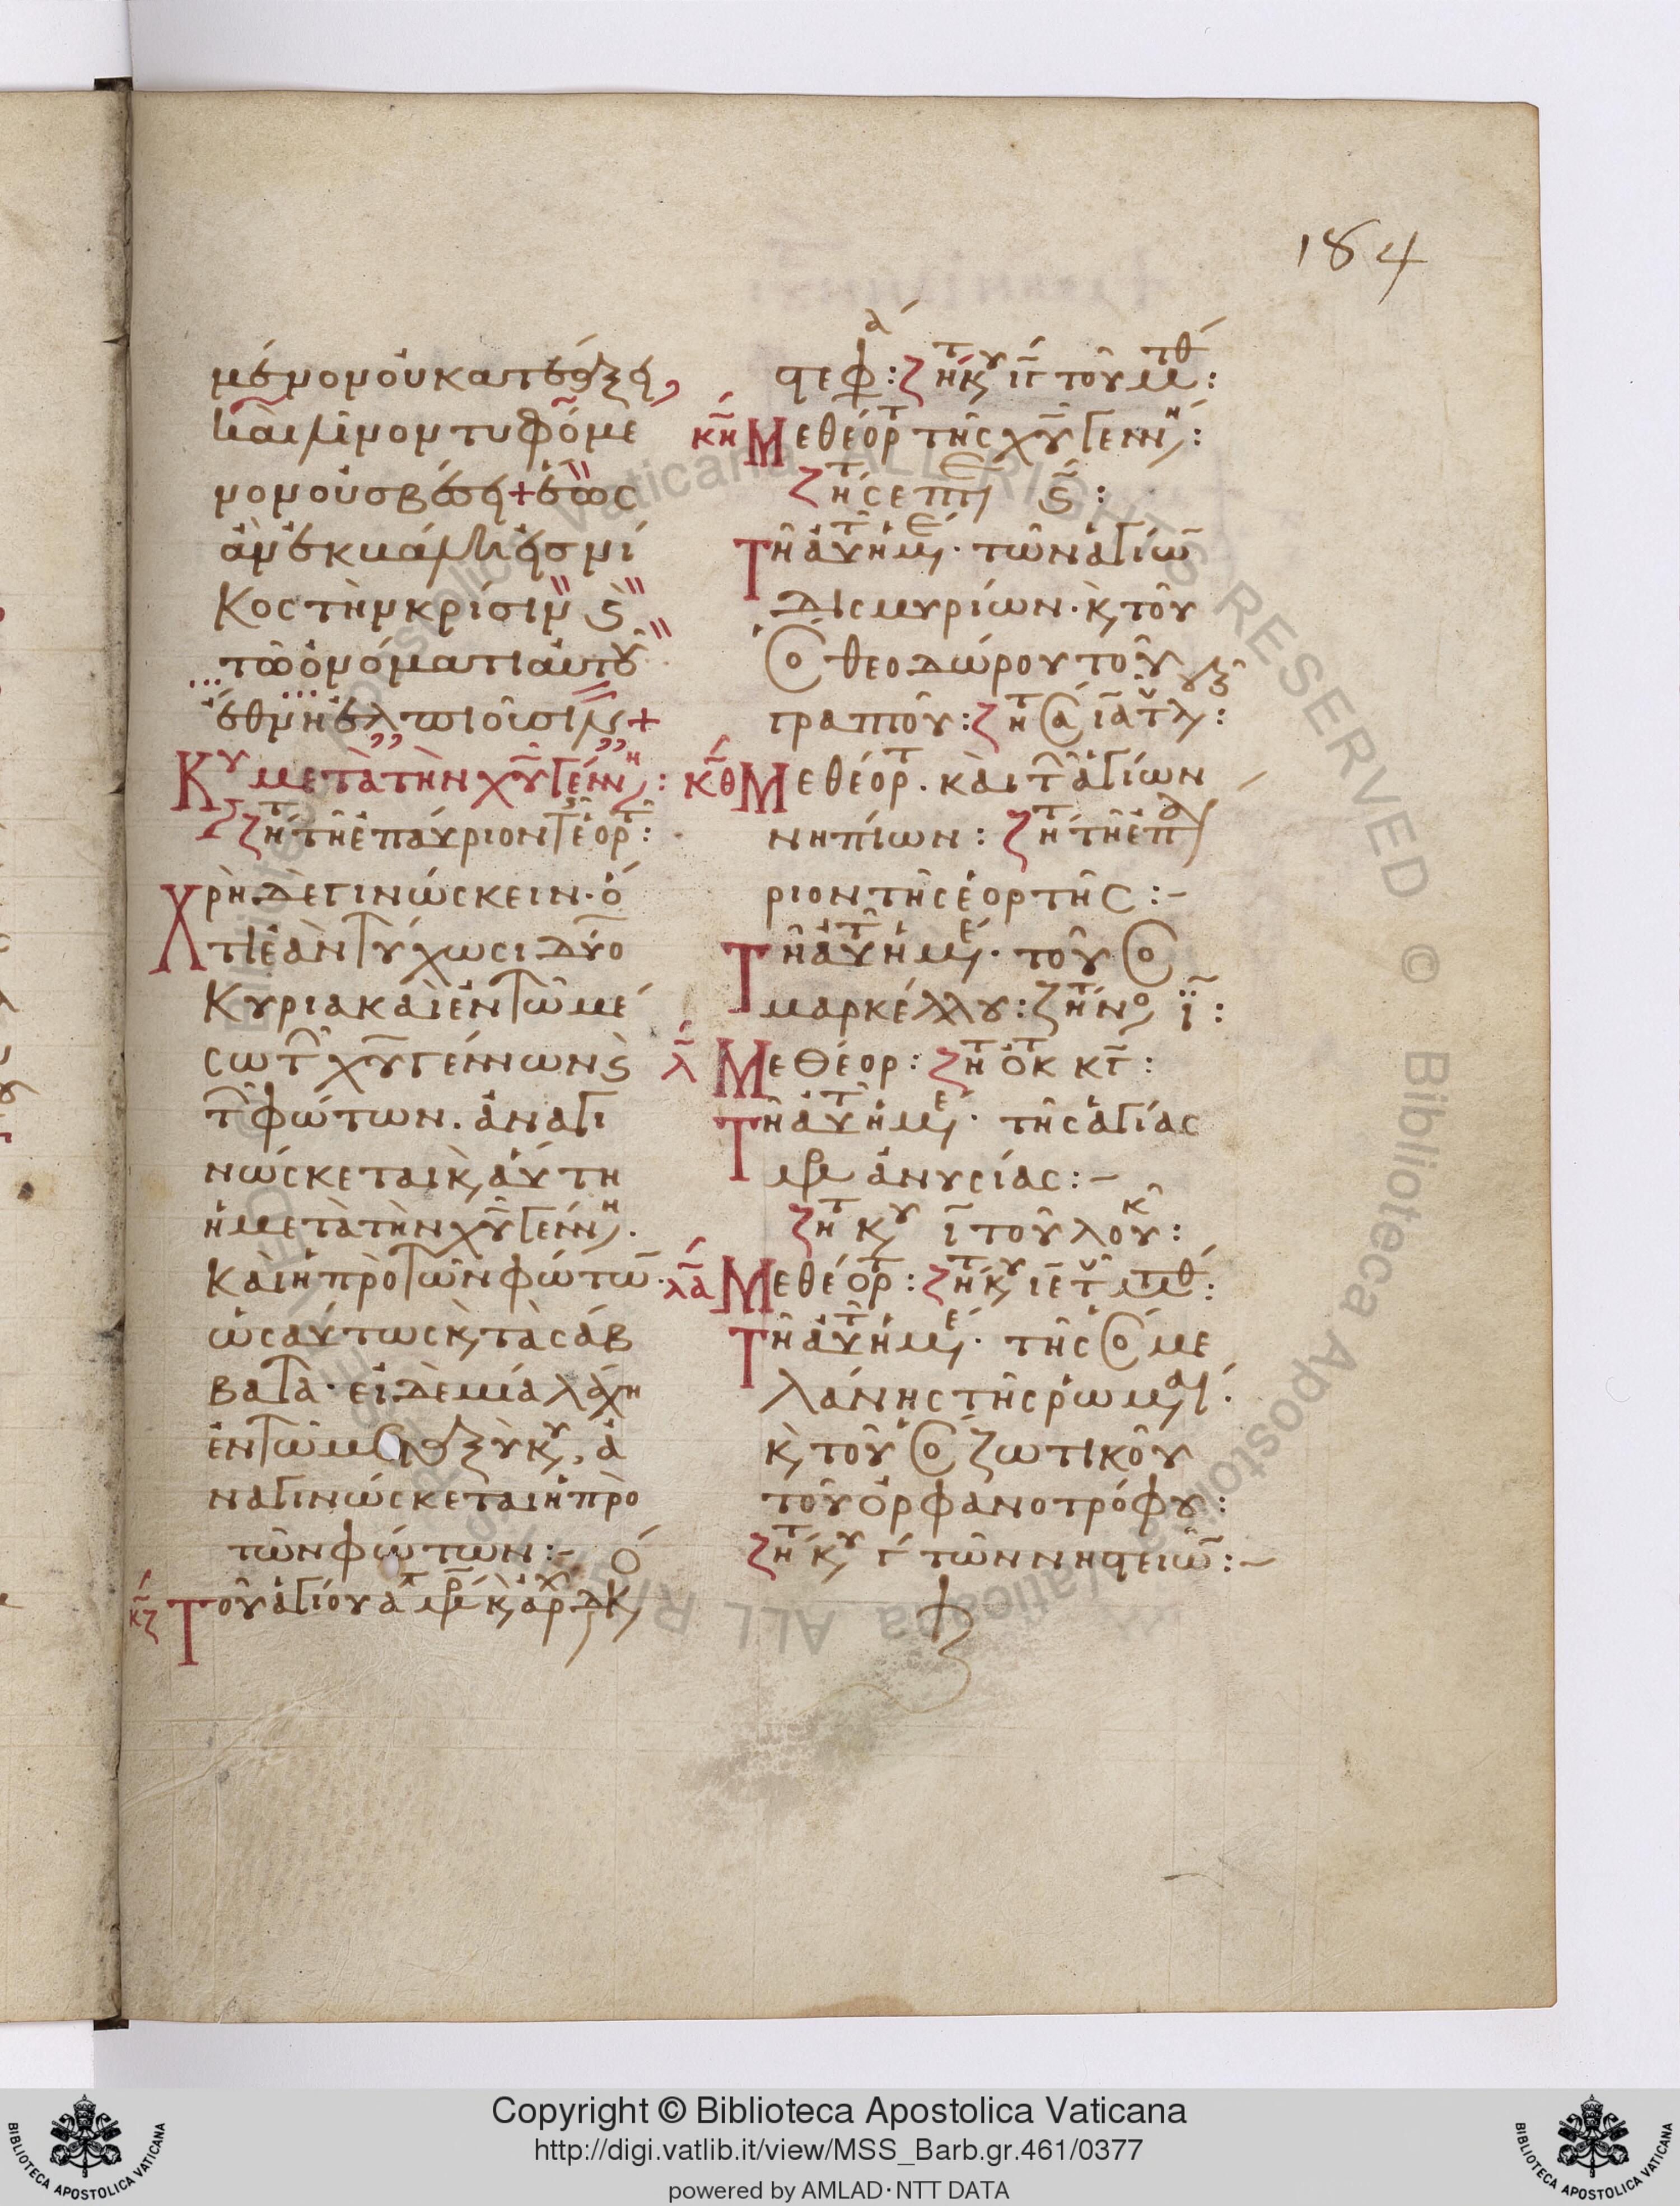 184
μένον οὐ κατεάξει,
καὶ λίνον τυφόμε
νον οὐ σβέσει + ἕως
ἂν ἐκβάλῃ εἰς νί
κος τὴν κρίσιν ϛ̀
τῶ ὀνόματι αὐτοῦ
ἔθνη ἐλπιοῦσιν +
Κυ μετὰ τὴν χυ γένν:
ζητ τῆ ἐπαύριον τ ἑορτ:
Χρὴ δὲ γινώσκειν· ὅ
τι ἐὰν τύχωσι δύο
Κυριακαὶ ἐν τῶ μέ
σω τ χυ γέννων ϛ̀
τ φώτων. ἀναγι
νώσκεται κ, αὕτη
ἡ μετὰ τὴν χυ γένν.
Καὶ ἡ πρὸ τῶν φώτω.
ὡσαύτως κ, τὰ σάβ
βατα· εἰ δὲ μία λάχη
ἐν τῶ μεταξὺ κυ, ἀ
ναγινώσκεται ἡ πρὸ
τῶν φώτων:-
κζ Τοῦ ἁγίου α μρ κ, ἀρχ δκ,
στεφ: ζητ κυ ιγ τοῦ μτθ:
κη Μεθέορτ τῆς χυ γενν:
ζητ ϛ:
Τῆ αὐτ ἡμε. τῶν ἁγίω
δισμυρίων. κ, τοῦ
ὁ θεοδώρου τοῦ
γραπτοῦ: ζητ
κθ Μεθέορτ. καὶ τ ἁγίων
νηπίων: ζητ τῆ ἐπ
ριον τῆς ἑορτῆς:-
Τῆ αὐτ ἡμε. τοῦ ὁ
μαρκέλλου: ζητ νο ι:
λ Μεθέορ: ζητ ὀκτ κγ:
Τῆ αὐτ ἡμε. τῆς ἁγίας
μρ ἀνυσίας:-
ζητ κυ ι τοῦ λουκ:
λα Μεθέορτ: ζητ κυ ιε τ μτθ:
Τῆ αὐτ ἡμε. τῆς ὁ με
λάνης τῆς ρωμ.
κ, τοῦ ὁ ζωτικοῦ
τοῦ ὀρφανοτρόφου:
ζητ κυ γ τῶν νηστειῶ:-
Copyright © Biblioteca Apostolica Vaticana
http://digi.vatlib.it/view/MSS_Barb.gr.461/0377
powered by AMLAD·NTT DATA
BIBLIOTECA APOSTOLICA VATICANA
BIBLIOTECA APOSTOLICA VATICANA